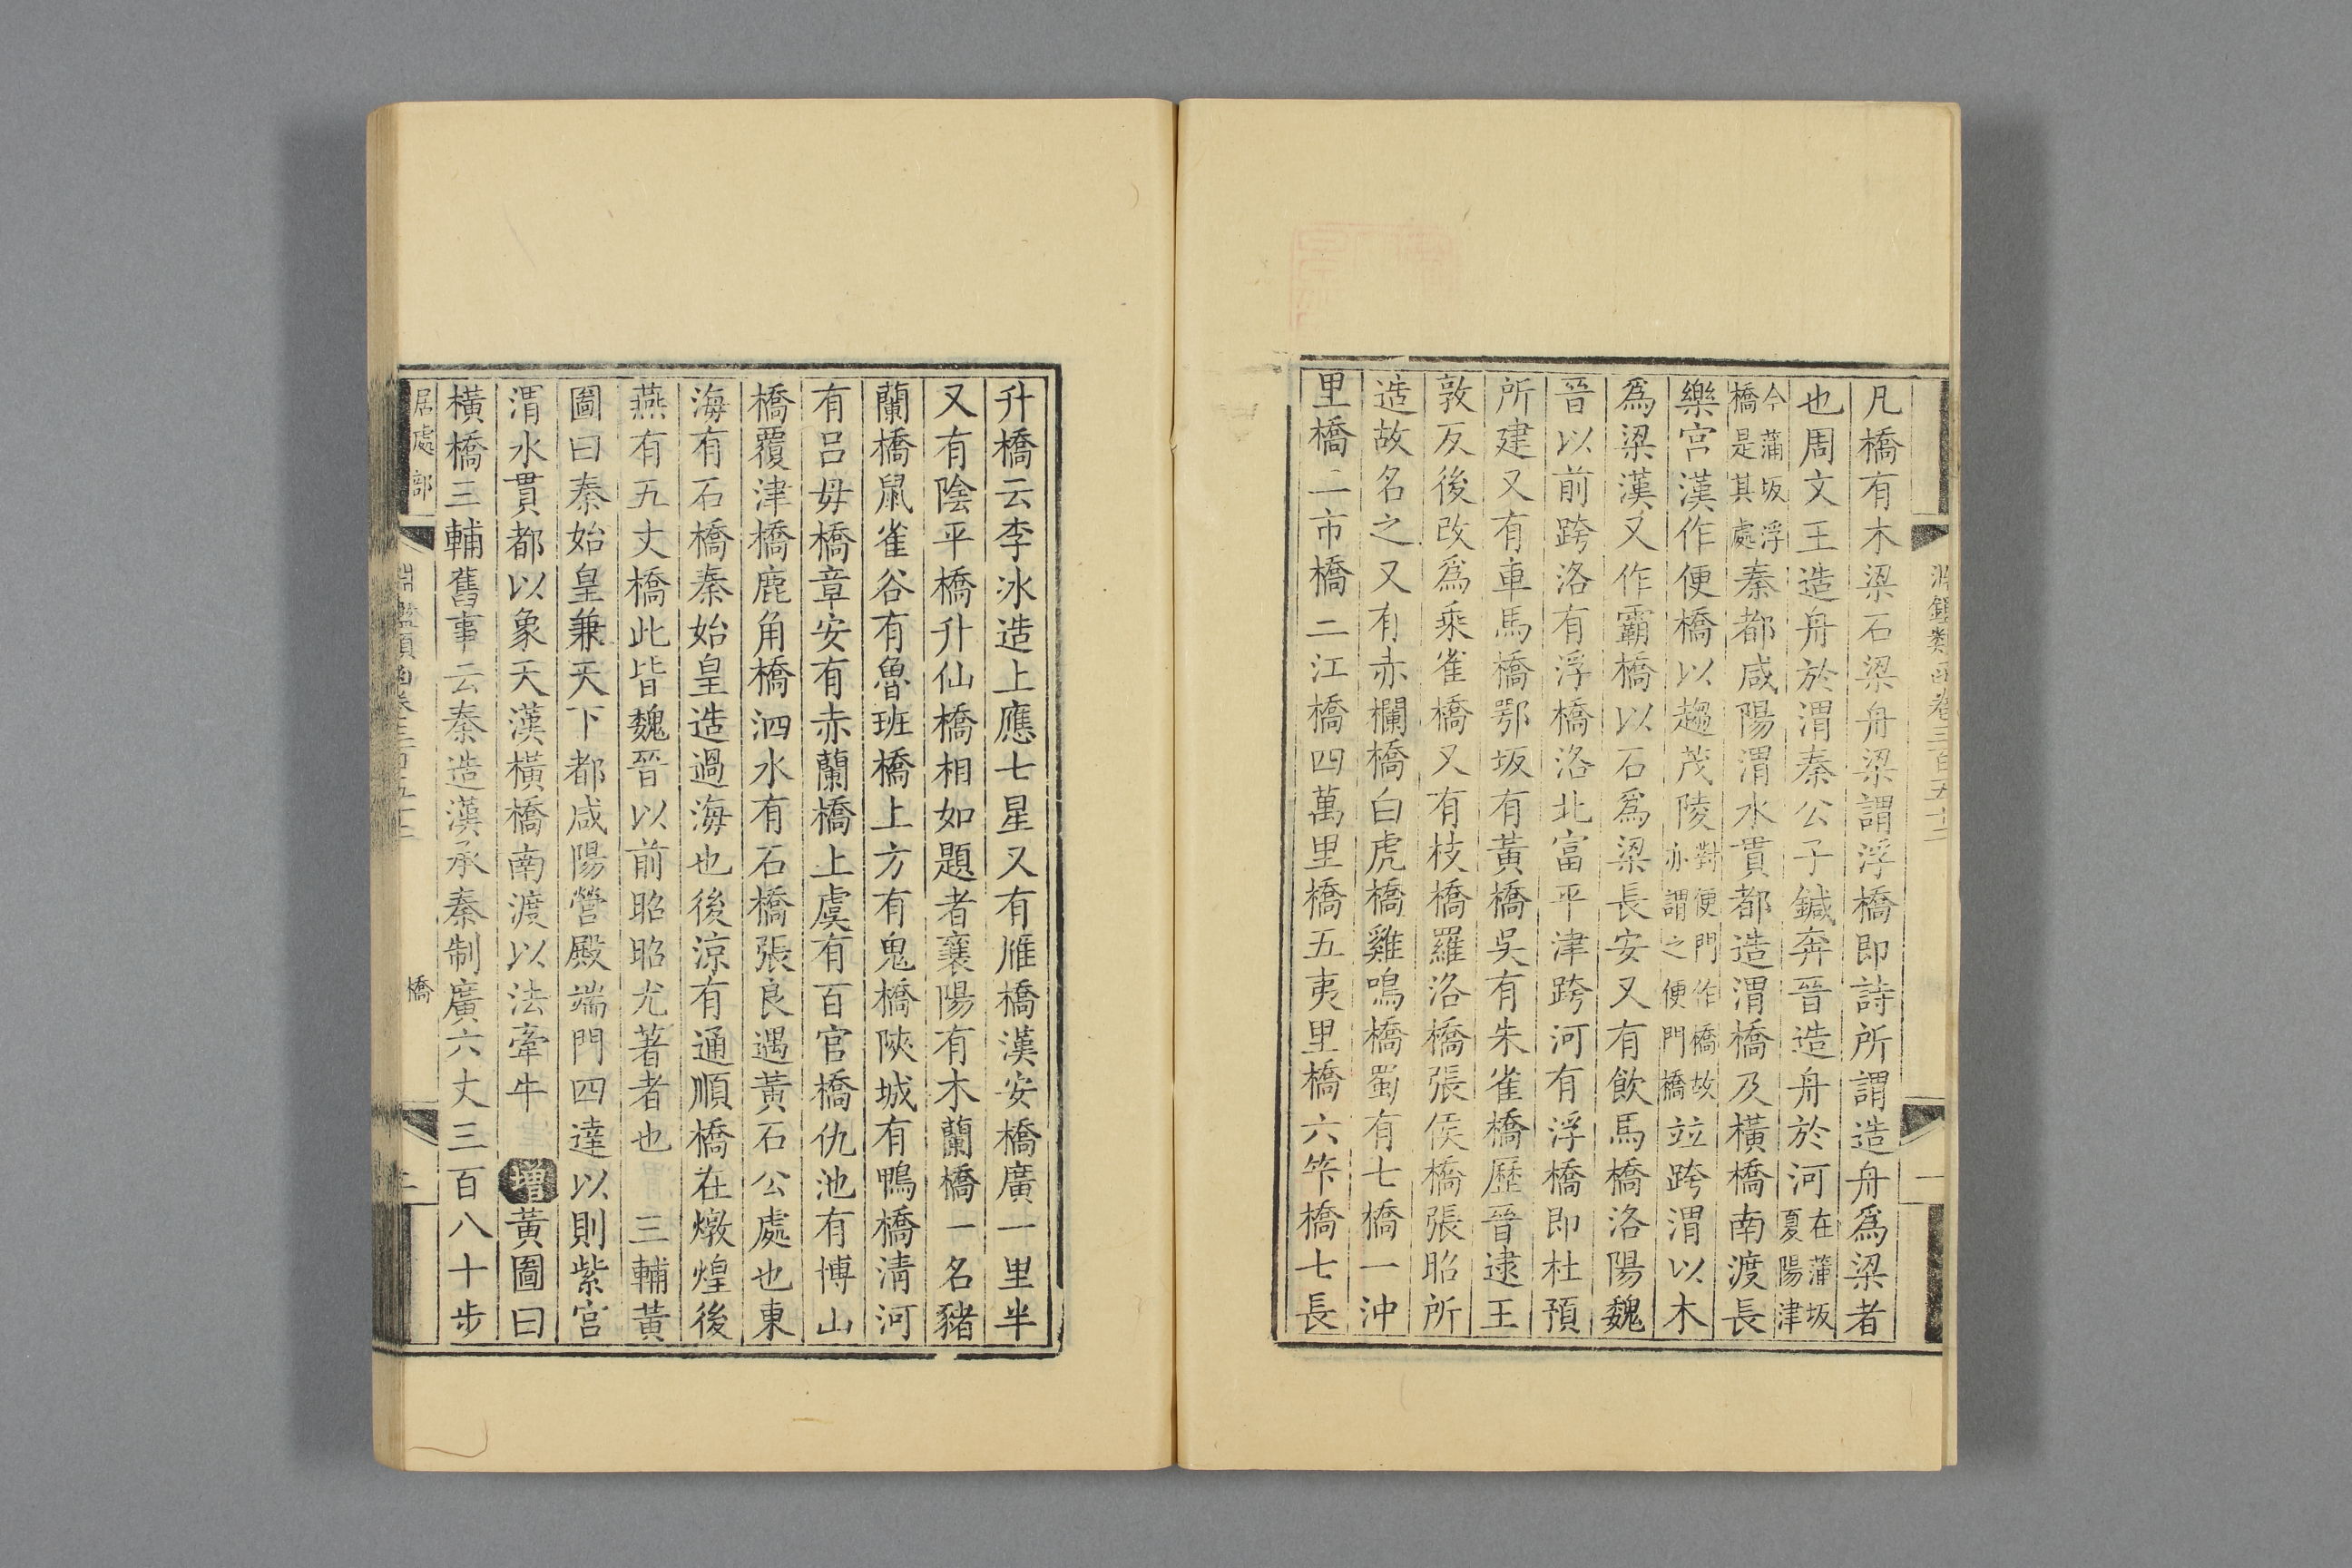 凡橋有木梁石梁舟梁謂浮橋即詩所謂造舟爲梁者
也周文王造舟於渭秦公子鍼奔晉造舟於河在蒲坂夏陽津
今蒲坂浮橋是其處秦都咸陽渭水貫都造渭橋及橫橋南渡長
樂宮漢作便橋以趨茂陵對便門作橋故亦謂之便門橋竝跨渭以木
爲梁漢又作霸橋以石爲梁長安又有飲馬橋洛陽魏
晉以前跨洛有浮橋洛北富平津跨河有浮橋即杜預
所建又有車馬橋鄂坂有黃橋吳有朱雀橋歷晉逮王
敦反後改爲乘雀橋又有枝橋羅洛橋張侯橋張昭所
造故名之又有赤欄橋白虎橋雞鳴橋蜀有七橋一沖
里橋二市橋三江橋四萬里橋五夷里橋六笮橋七長
升橋云李冰造上應七星又有雁橋漢安橋廣一里半
又有陰平橋升仙橋相如題者襄陽有木蘭橋一名豬
蘭橋鼠雀谷有魯班橋上方有鬼橋陝城有鴨橋淸河
有呂母橋章安有赤蘭橋上虞有百官橋仇池有博山
橋覆津橋鹿角橋泗水有石橋張良遇黃石公處也東
海有石橋秦始皇造過海也後涼有通順橋在燉煌後
燕有五丈橋此皆魏晉以前昭昭尤著者也 三輔黃
圖曰秦始皇兼天下都咸陽營殿端門四達以則紫宮
渭水貫都以象天漢橫橋南渡以法牽牛 增黃圖曰
橫橋三輔舊事云秦造漢承秦制廣六丈三百八十步
居處部 淵鑑類函卷三百五十二 橋 二
淵鑑類函卷三百五十二 一